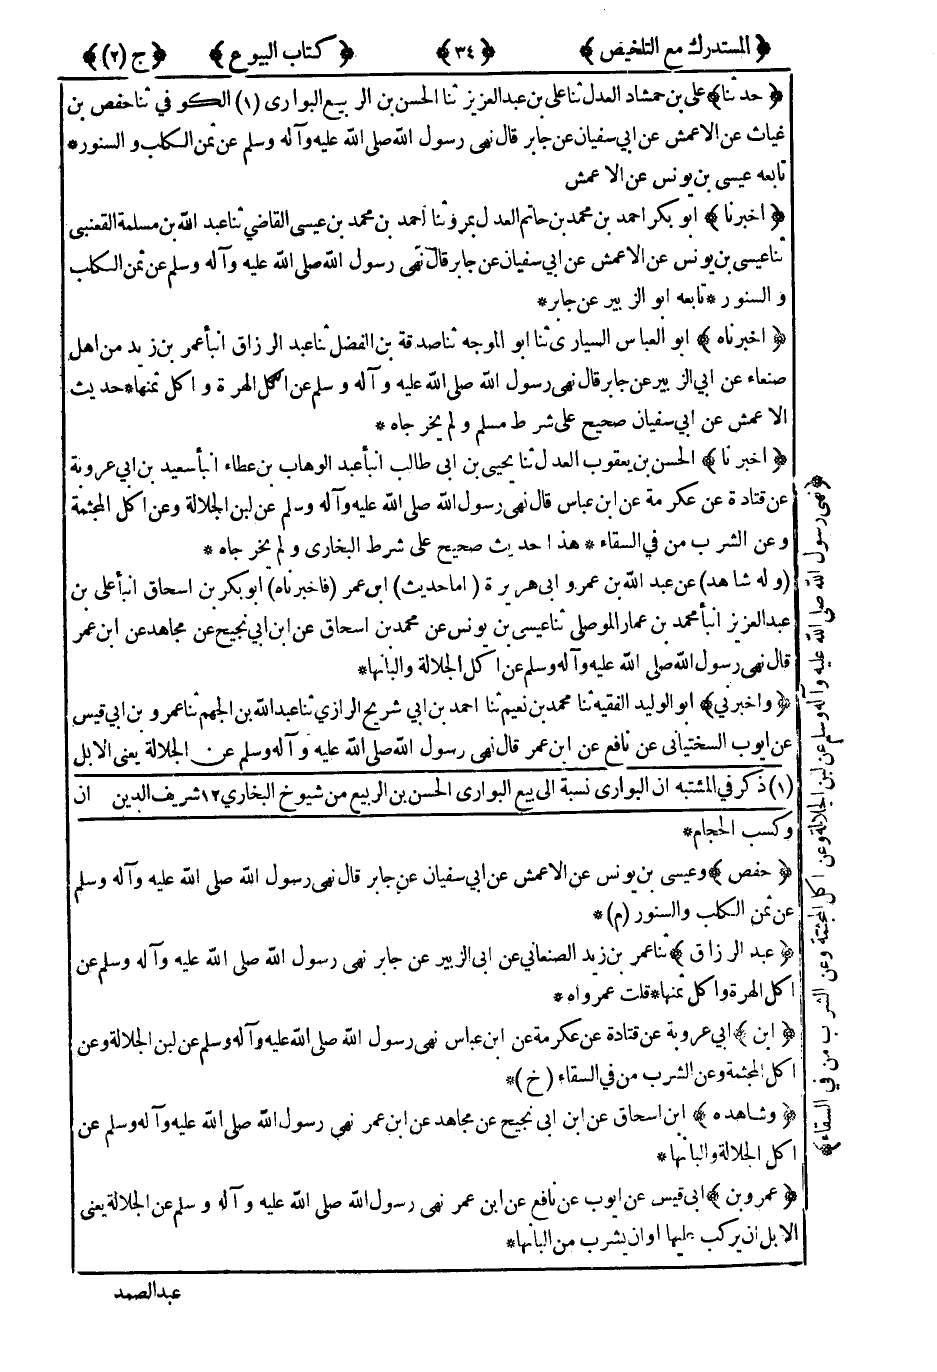 ﴿ المستدرك مع التلخيص ﴾ ﴿ ٣٤ ﴾ ﴿ كتاب البيوع ﴾ ﴿ ج (٢) ﴾
﴿ حدثنا ﴾ علي بن حمشاد العدل ثنا علي بن عبد العزيز ثنا الحسن بن الربيع البوارى (١) الكوفي ثنا حفص بن
غياث عن الاعمش عن ابي سفيان عن جابر قال نهى رسول الله صلى الله عليه وآله وسلم عن ثمن الكلب و السنور *
تابعه عيسى بن يونس عن الاعمش
﴿ اخبرنا ﴾ ابو بكر احمد بن محمد بن حاتم العدل بمرو ثنا أحمد بن محمد بن عيسى القاضي ثنا عبد الله بن مسلمة القعنبى
ثنا عيسى بن يونس عن الاعمش عن ابي سفيان عن جابر قال نهى رسول الله صلى الله عليه وآله وسلم عن ثمن الكلب
و السنور * تابعه ابو الزبير عن جابر *
﴿ اخبرناه ﴾ ابو العباس السيارى ثنا ابو الموجه ثنا صدقة بن الفضل ثنا عبد الرزاق انبأ عمر بن زيد من اهل
صنعاء عن ابي الزبير عن جابر قال نهى رسول الله صلى الله عليه وآله وسلم عن اكل الهرة و اكل ثمنها * حديث
الاعمش عن ابي سفيان صحيح على شرط مسلم و لم يخرجاه *
﴿ اخبرنا ﴾ الحسن بن يعقوب العدل ثنا يحيى بن ابى طالب انبأ عبد الوهاب بن عطاء انبأ سعيد بن ابي عروبة
عن قتادة عن عكرمة عن ابن عباس قال نهى رسول الله صلى الله عليه وآله وسلم عن لبن الجلالة وعن اكل المجثمة
وعن الشرب من في السقاء * هذا حديث صحيح على شرط البخارى و لم يخرجاه *
(وله شاهد) عن عبد الله بن عمرو ابى هريرة (اما حديث) ابن عمر (فاخبرناه) ابو بكر بن اسحاق انبأ على بن
عبد العزيز انبأ محمد بن عمار الموصلي ثنا عيسى بن يونس عن محمد بن اسحاق عن ابن ابي نجيح عن مجاهد عن ابن عمر
قال نهى رسول الله صلى الله عليه وآله وسلم عن اكل الجلالة والبانها *
﴿ واخبرني ﴾ ابو الوليد الفقيه ثنا محمد بن نعيم ثنا احمد بن ابي شريح الرازي ثنا عبد الله بن الجهم ثنا عمرو بن ابي قيس
عن ايوب السختيانى عن نافع عن ابن عمر قال نهى رسول الله صلى الله عليه وآله وسلم عن الجلالة يعنى الابل
(١) ذكر في المشتبه ان البوارى نسبة الى بيع البوارى الحسن بن الربيع من شيوخ البخاري ١٢ شريف الدين ان
وكسب الحجام *
﴿ حفص ﴾ وعيسى بن يونس عن الاعمش عن ابي سفيان عن جابر قال نهى رسول الله صلى الله عليه وآله وسلم
عن ثمن الكلب والسنور (م) *
﴿ عبد الرزاق ﴾ ثنا عمر بن زيد الصنعاني عن ابى الزبير عن جابر نهى رسول الله صلى الله عليه وآله وسلم عن
اكل الهرة و اكل ثمنها * قلت عمر واه *
﴿ ابن ﴾ ابي عروبة عن قتادة عن عكرمة عن ابن عباس نهى رسول الله صلى الله عليه وآله وسلم عن لبن الجلالة وعن
اكل المجثمة وعن الشرب من في السقاء (خ) *
﴿ وشاهده ﴾ ابن اسحاق عن ابن ابى نجيح عن مجاهد عن ابن عمر نهى رسول الله صلى الله عليه وآله وسلم عن
اكل الجلالة والبانها *
﴿ عمرو بن ﴾ ابي قيس عن ايوب عن نافع عن ابن عمر نهى رسول الله صلى الله عليه وآله وسلم عن الجلالة يعنى
الابل ان يركب عليها او ان يشرب من البانها *
عبد الصمد
﴿ نهى رسول الله صلى الله عليه وآله وسلم عن لبن الجلالة وعن اكل المجثمة وعن الشرب من في السقاء ﴾